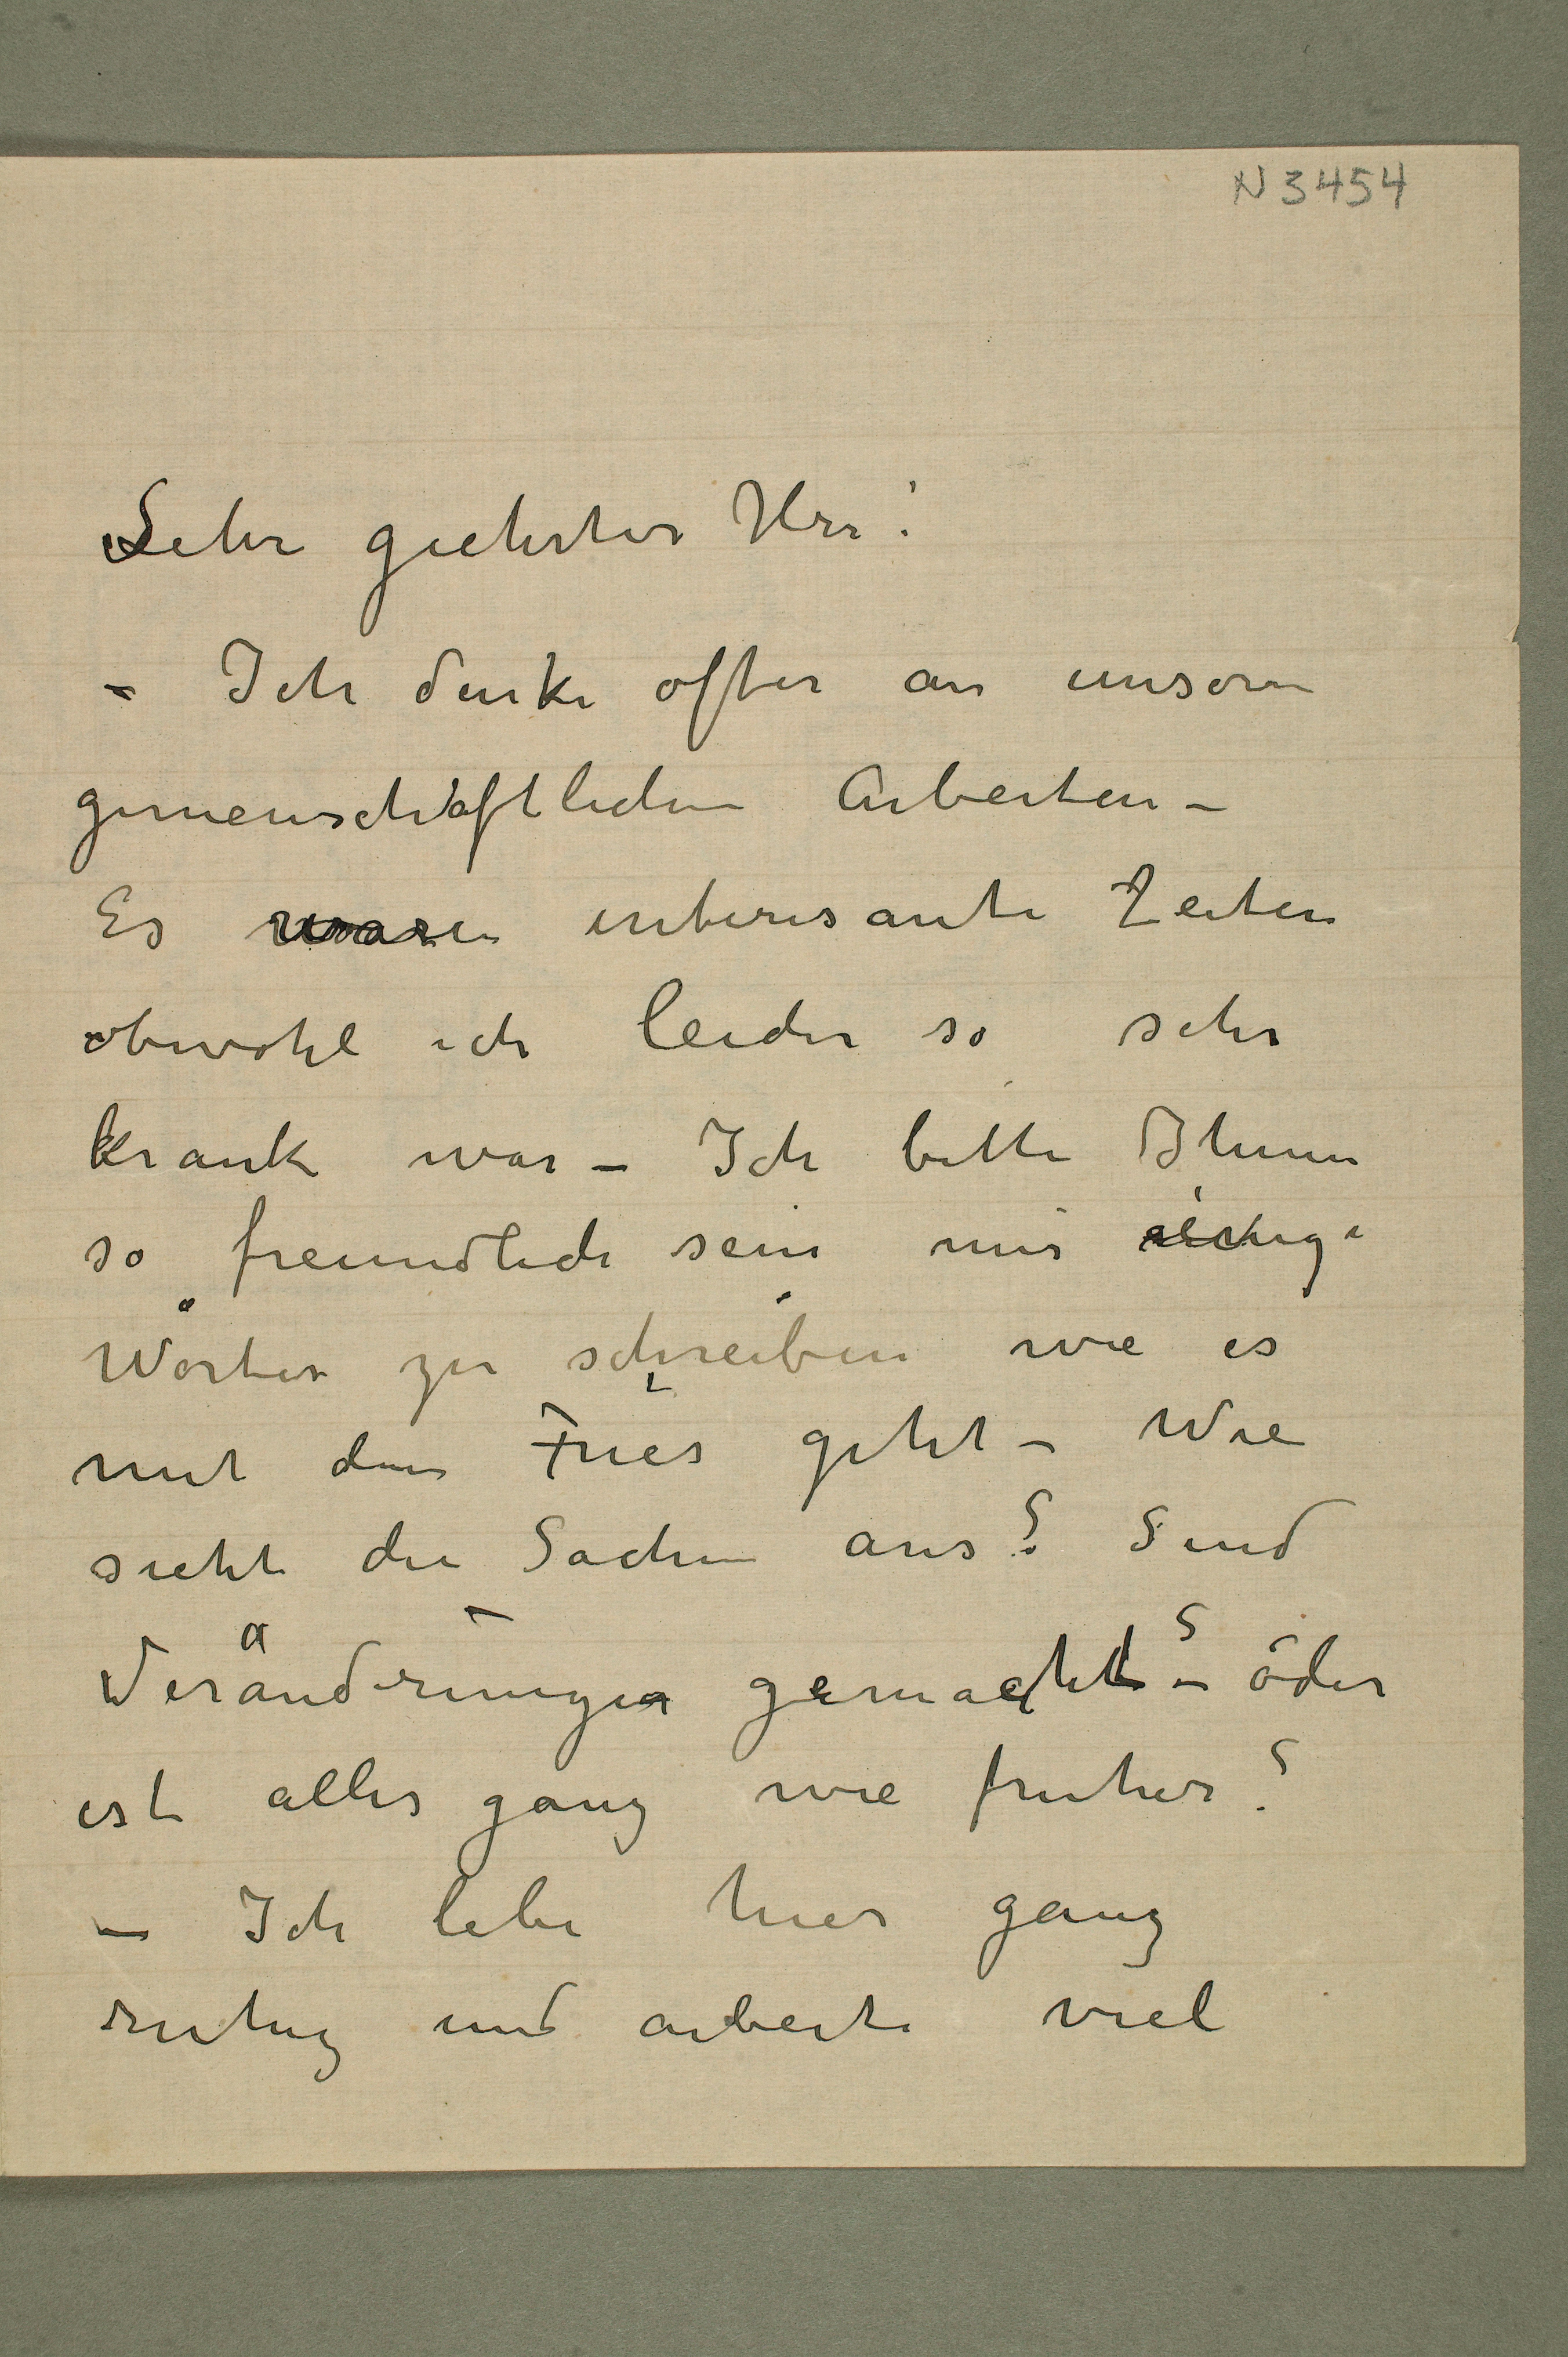 N 3454
Sehr geehrter Herr!
– Ich denke öfter an unsern
gemeinschaftlichen Arbeiten –
Es waren interesante Zeiten
obwohl ich leider so sehr
krank war – Ich bitte Ihnen
so freundlich sein mir einige
Wörter zu schreiben wie es
mit dem Fries geht – Wie
sieht die Sachen aus? Sind
Veränderungen gemacht? – oder
ist alles ganz wie früher?
– Ich lebe hier ganz
ruhig und arbeite viel